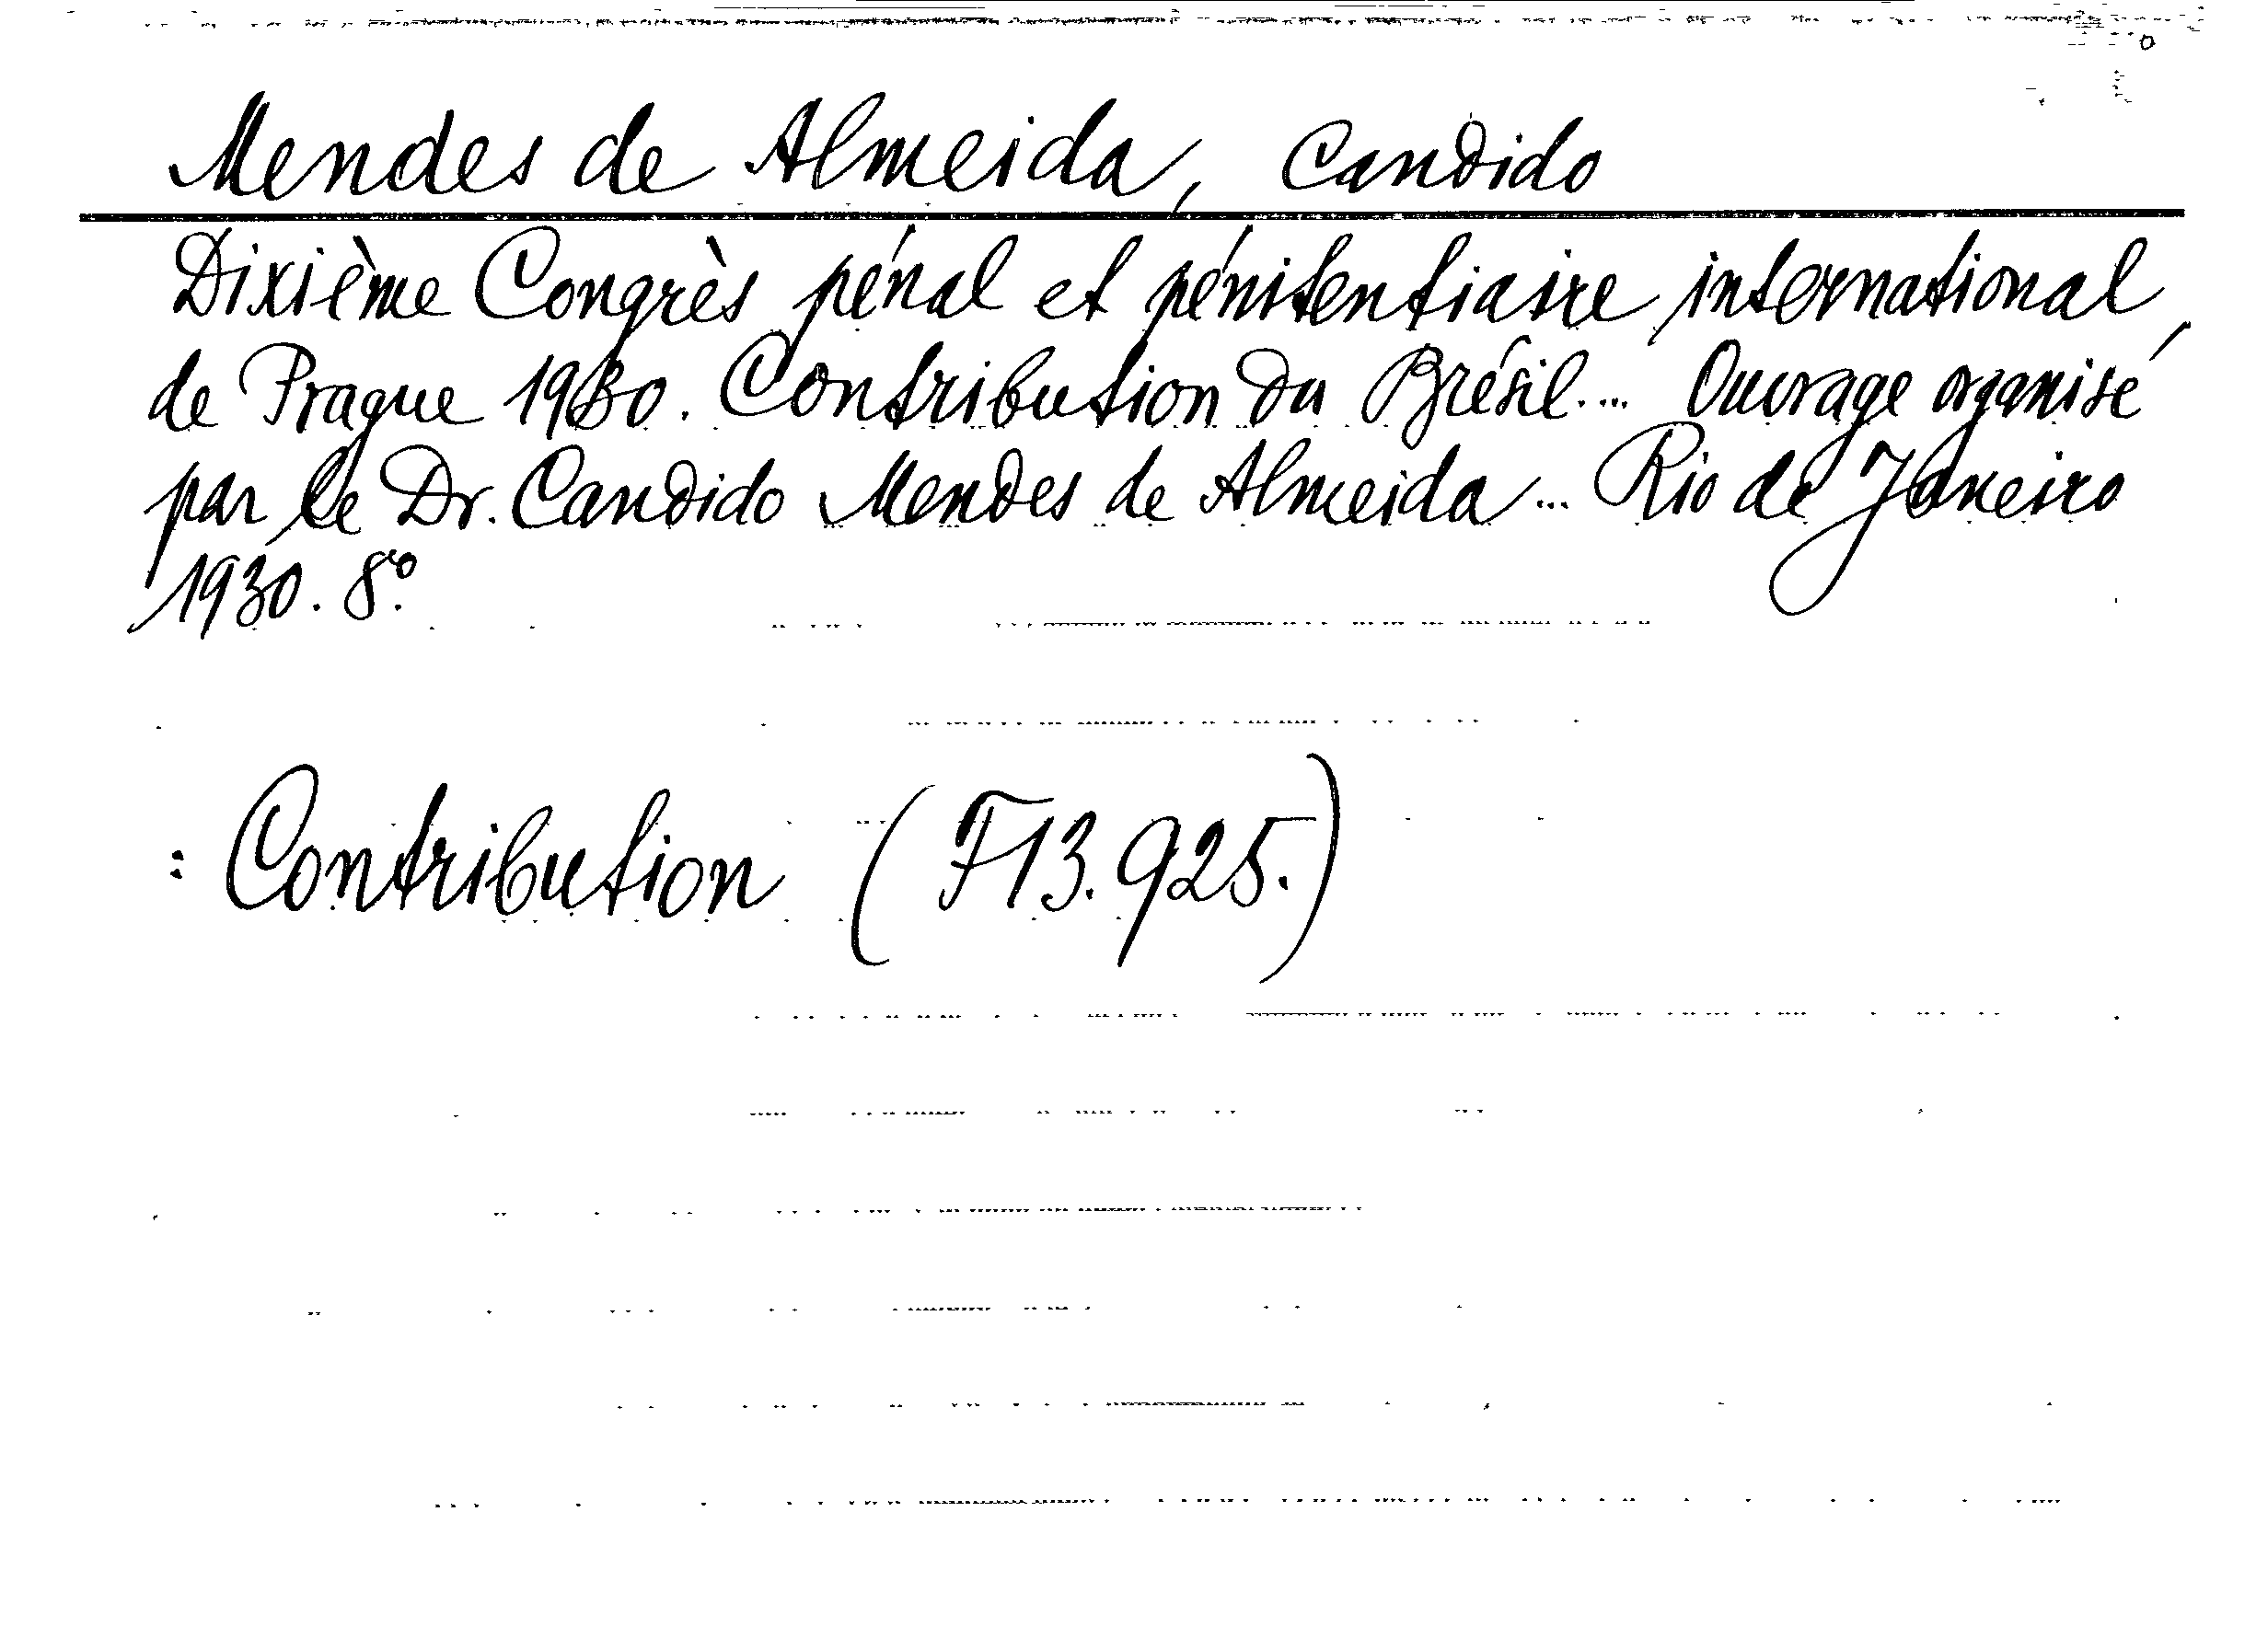 Mendes de Almeida, Candido
Dixième Congrès pénal et pénitentiaire international
de Prague 1930. Contribution du Brésil.... Ouvrage organisé
par le Dr. Candido Mendes de Almeida... Rio de Janeiro
1930. 8º.
: Contribution (F13.925.)